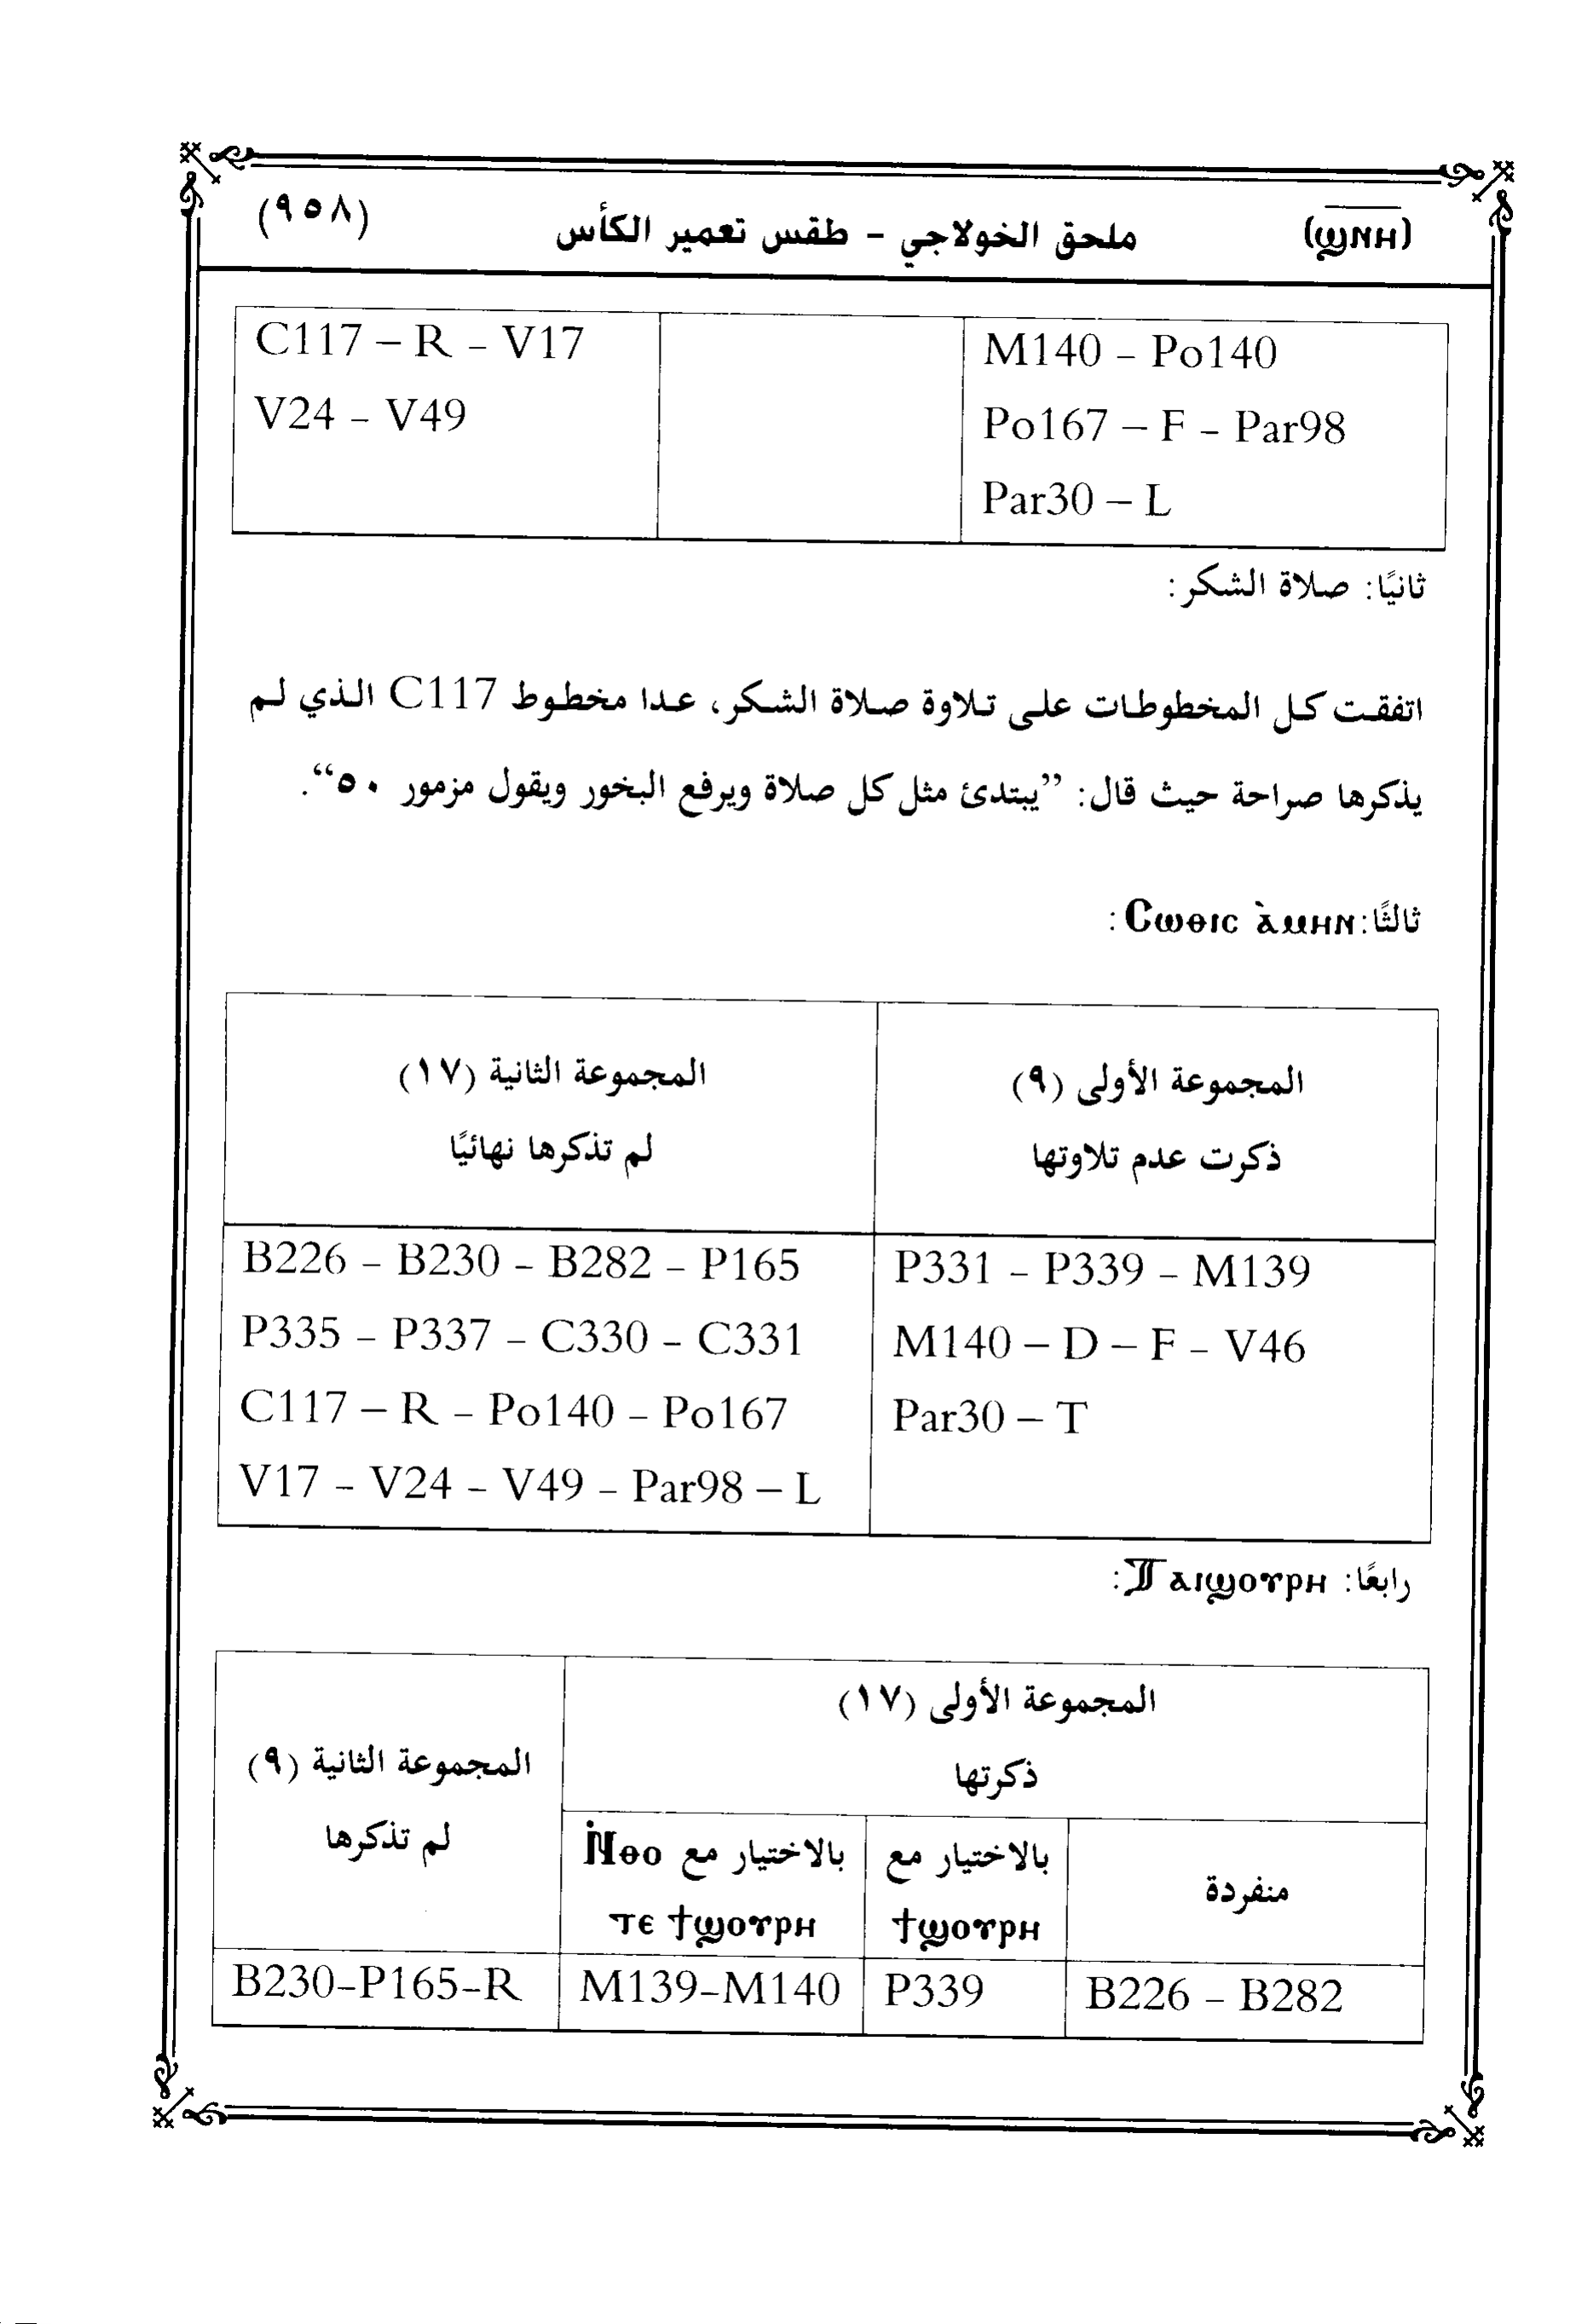 (ϣⲛⲏ) ملحق الخولاجي - طقس تعمير الكأس (٩٥٨)
M140 – Po140
Po167 – F – Par98
Par30 – L
C117 – R – V17
V24 – V49
ثانيًا: صلاة الشكر:
اتفقت كل المخطوطات على تلاوة صلاة الشكر، عدا مخطوط C117 الذي لم
يذكرها صراحة حيث قال: ”يبتدئ مثل كل صلاة ويرفع البخور ويقول مزمور ٥٠“.
ثالثًا: Ⲥⲱⲑⲓⲥ ⲁ̀ⲙⲏⲛ:
المجموعة الأولى (٩)
ذكرت عدم تلاوتها
المجموعة الثانية (١٧)
لم تذكرها نهائيًا
P331 – P339 – M139
M140 – D – F – V46
Par30 – T
B226 – B230 – B282 – P165
P335 – P337 – C330 – C331
C117 – R – Po140 – Po167
V17 – V24 – V49 – Par98 – L
رابعًا: Ⲧⲁⲓϣⲟⲩⲣⲏ:
المجموعة الأولى (١٧)
ذكرتها
المجموعة الثانية (٩)
لم تذكرها
منفردة
بالاختيار مع
ϯϣⲟⲩⲣⲏ
بالاختيار مع Ⲛ̀ⲑⲟ
ⲧⲉ ϯϣⲟⲩⲣⲏ
B226 – B282
P339
M139-M140
B230-P165-R